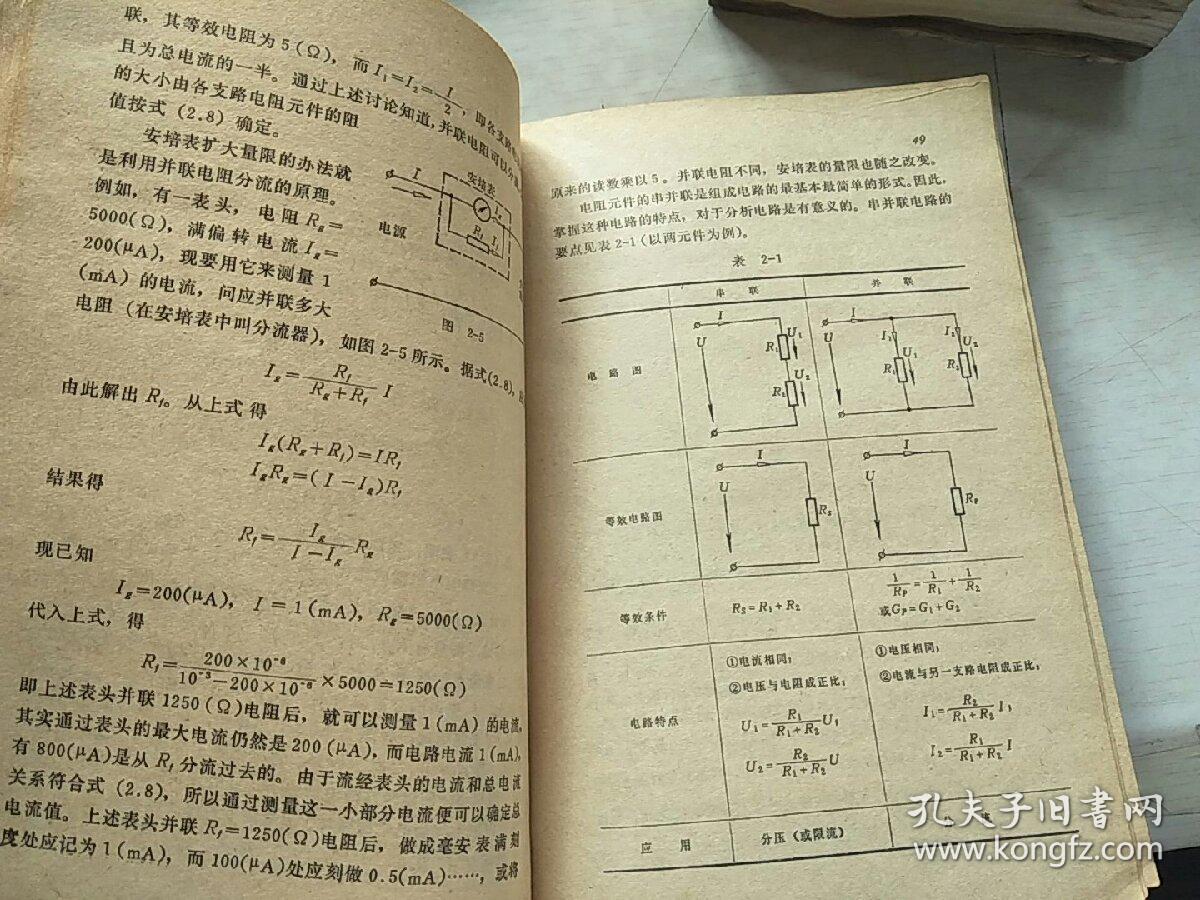 联，其等效电阻为5(Ω)，而I₁=I₂=I/2，即各支路
且为总电流的一半。通过上述讨论知道，并联电阻可以分
的大小由各支路电阻元件的阻
值按式（2.8）确定。
安培表扩大量限的办法就
是利用并联电阻分流的原理。
例如，有一表头，电阻Rg=
5000(Ω)，满偏转电流Ig=
200(μA)，现要用它来测量1
(mA)的电流，问应并联多大
电阻（在安培表中叫分流器），如图2-5所示。据式(2.8)，
安培表
I
Ig
Rf If
电源
图 2-5
Ig=Rf/(Rg+Rf) I
由此解出Rf。从上式得
Ig(Rg+Rf)=IRf
IgRg=(I-Ig)Rf
结果得
Rf=Ig/(I-Ig) Rg
现已知
Ig=200(μA)，I=1(mA)，Rg=5000(Ω)
代入上式，得
Rf=200×10⁻⁶/(10⁻³-200×10⁻⁶)×5000=1250(Ω)
即上述表头并联1250(Ω)电阻后，就可以测量1(mA)的电流，
其实通过表头的最大电流仍然是200(μA)，而电路电流1(mA)，
有800(μA)是从Rf分流过去的。由于流经表头的电流和总电流
关系符合式（2.8），所以通过测量这一小部分电流便可以确定总
电流值。上述表头并联Rf=1250(Ω)电阻后，做成毫安表满刻
度处应记为1(mA)，而100(μA)处应刻做0.5(mA)……，或将
49
原来的读数乘以5。并联电阻不同，安培表的量限也随之改变。
电阻元件的串并联是组成电路的最基本最简单的形式。因此，
掌握这种电路的特点，对于分析电路是有意义的。串并联电路的
要点见表2-1(以两元件为例)。
表 2-1
串 联 并 联
电 路 图
I U R₁ U₁ R₂ U₂
I U I₁ U₁ R₁ I₂ U₂ R₂
等效电路图
I U RS
I U RP
等效条件
RS=R₁+R₂
1/RP=1/R₁+1/R₂
或GP=G₁+G₂
电路特点
①电流相同；
②电压与电阻成正比；
U₁=R₁/(R₁+R₂)U₁
U₂=R₂/(R₁+R₂)U
①电压相同；
②电流与另一支路电阻成正比；
I₁=R₂/(R₁+R₂)I
I₂=R₁/(R₁+R₂)I
应 用 分压（或限流）
孔夫子旧书网
www.kongfz.com